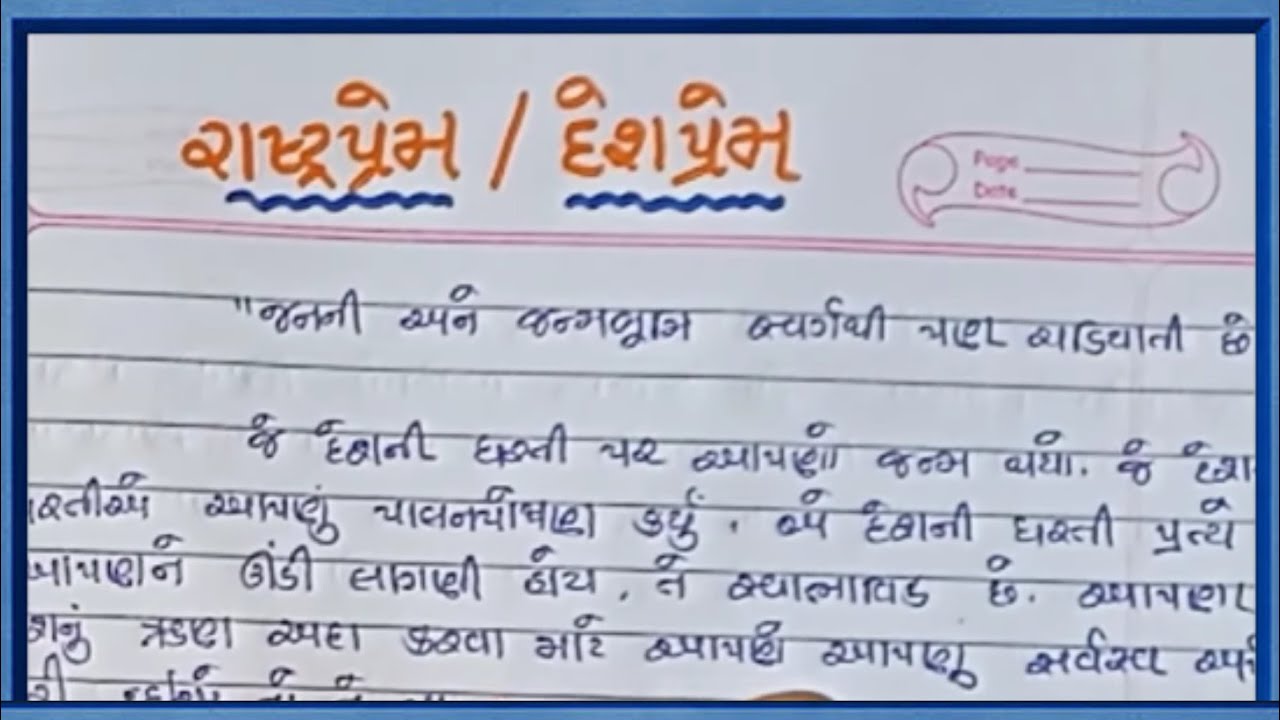 રાષ્ટ્રપ્રેમ / દેશપ્રેમ
Page
Date
"જનની અને જન્મભૂમિ સ્વર્ગથી પણ ચડિયાતી છે
જે દેશની ધરતી પર આપણો જન્મ થયો. જે દેશ
ધરતીએ આપણું પાલનપોષણ કર્યું. એ દેશની ધરતી પ્રત્યે
આપણને ઊંડી લાગણી હોય, તે સ્વાભાવિક છે. આપણા
ઋણ અદા કરવા માટે આપણે આપણુ સર્વસ્વ